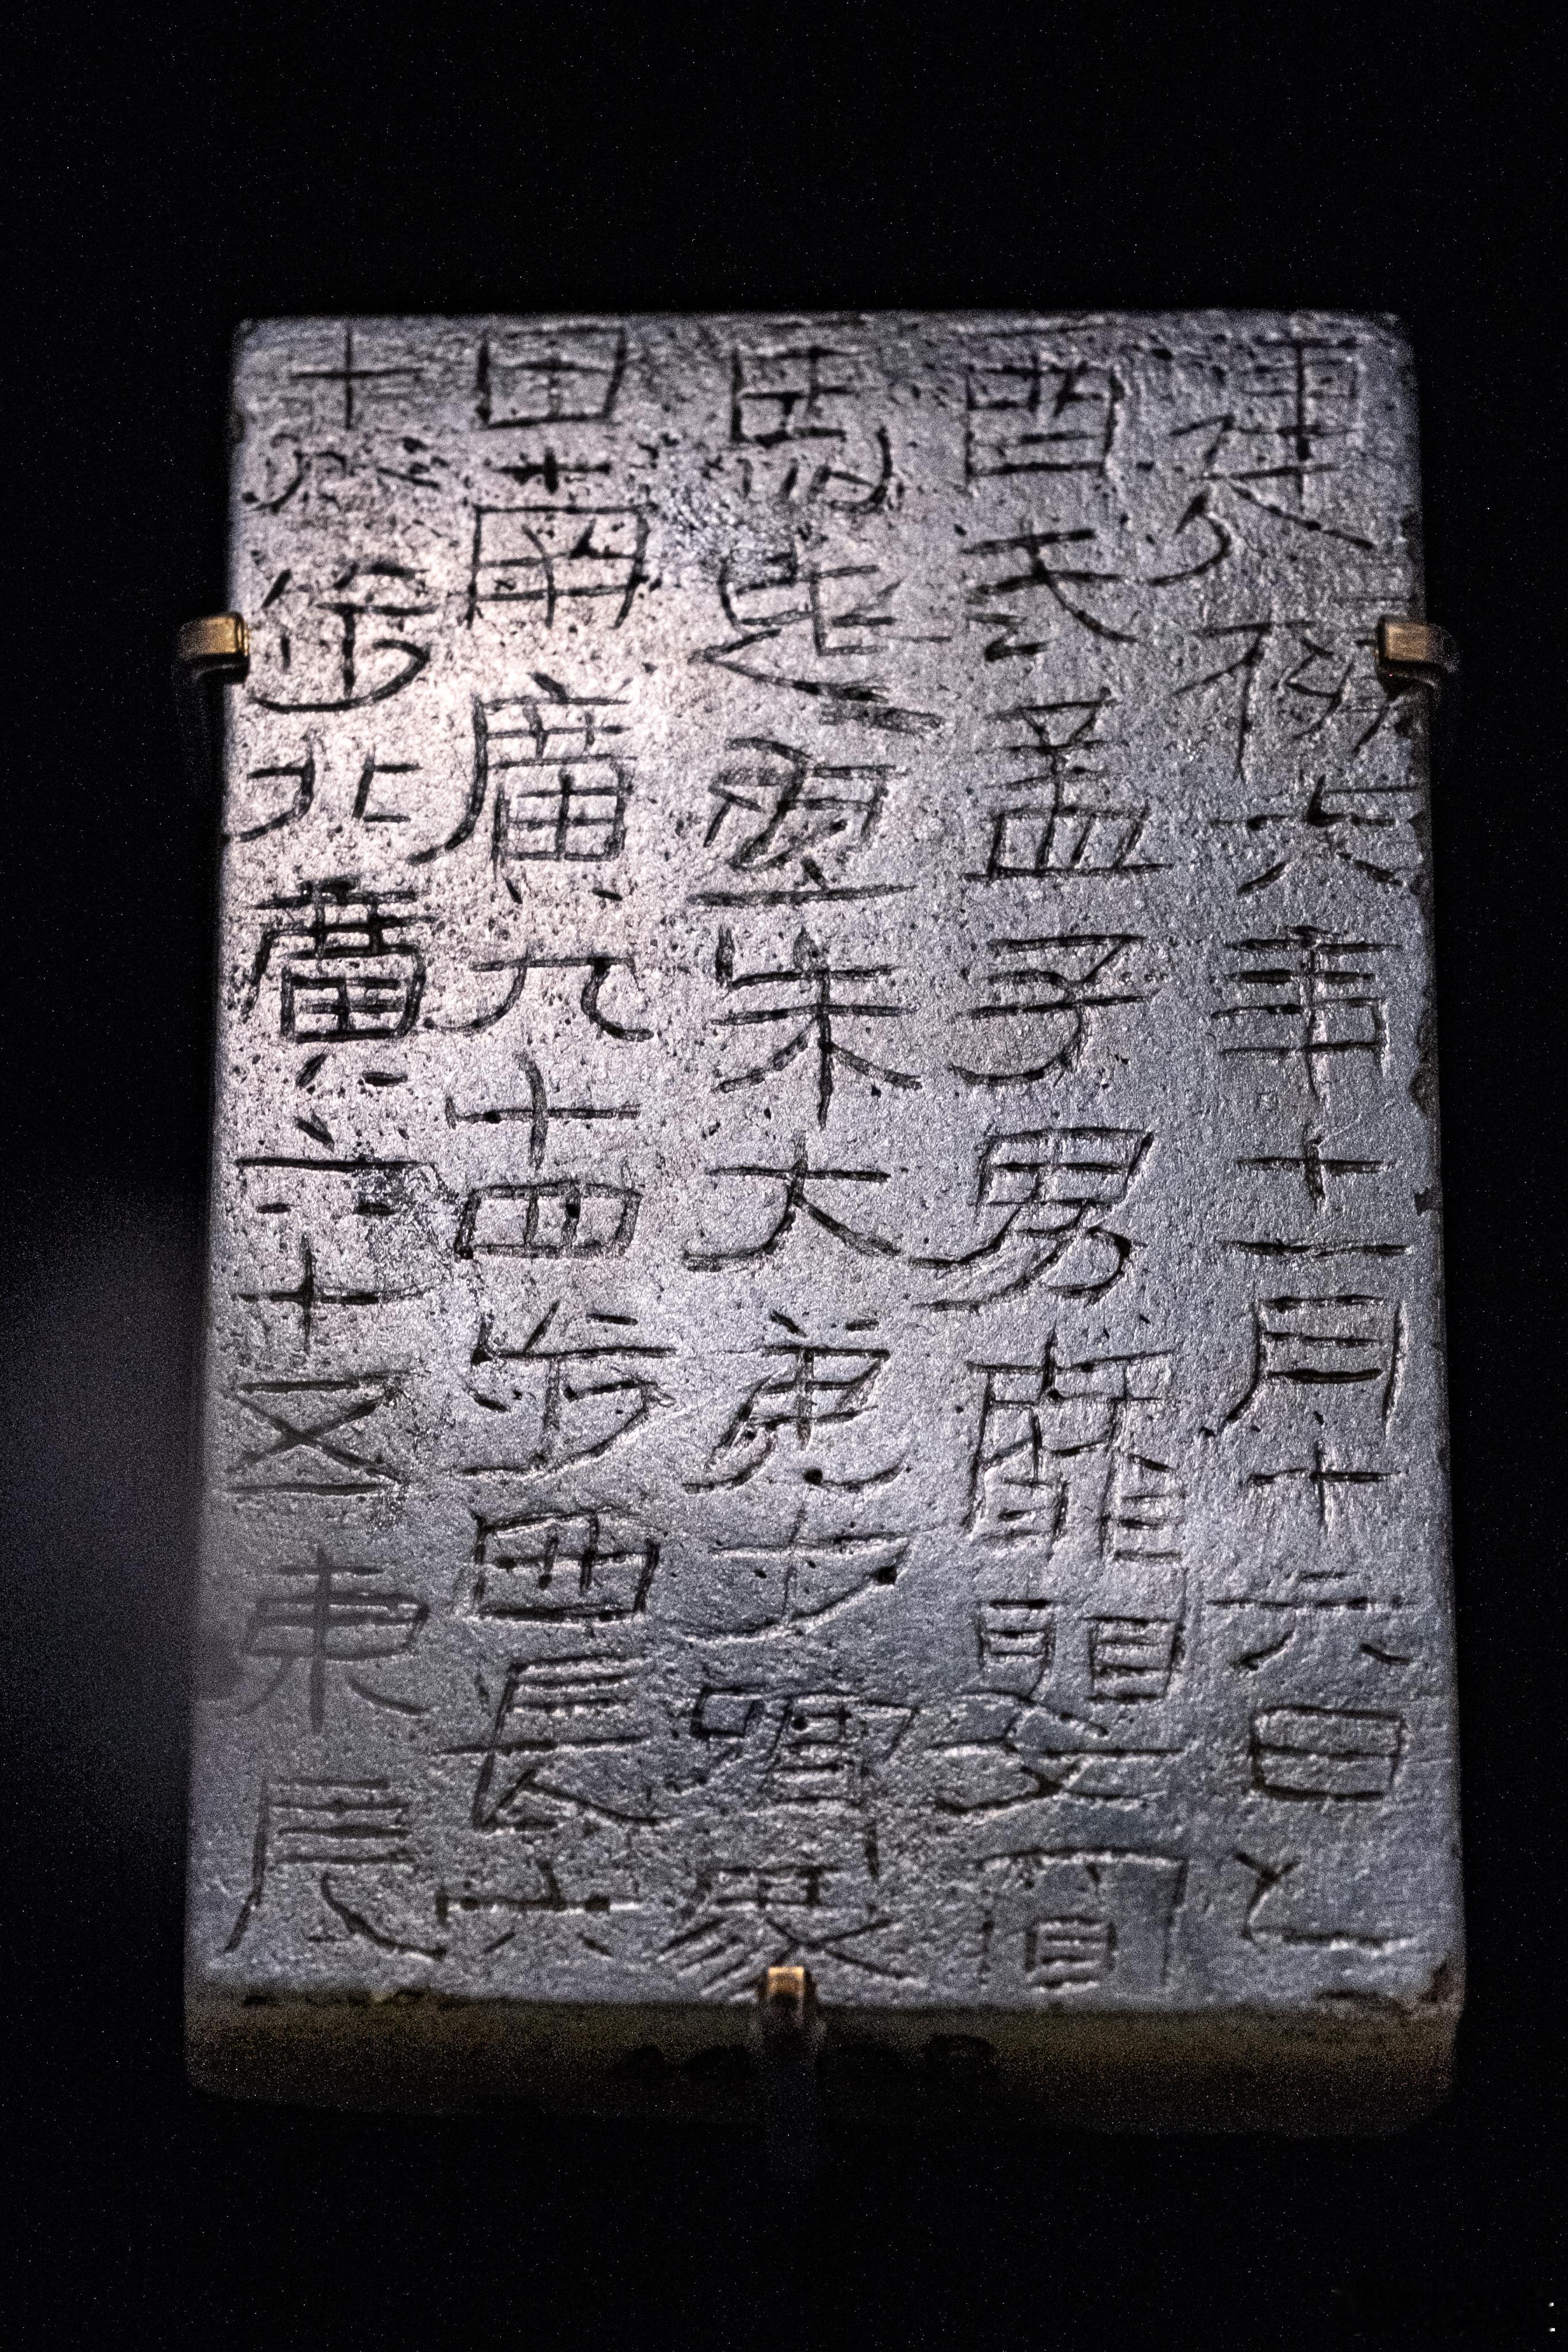 建初六年十一月十六日乙
酉武孟子男靡嬰買
馬起宜朱大弟少卿冢
田南廣九十四步西長六
十八步北廣六十五東長